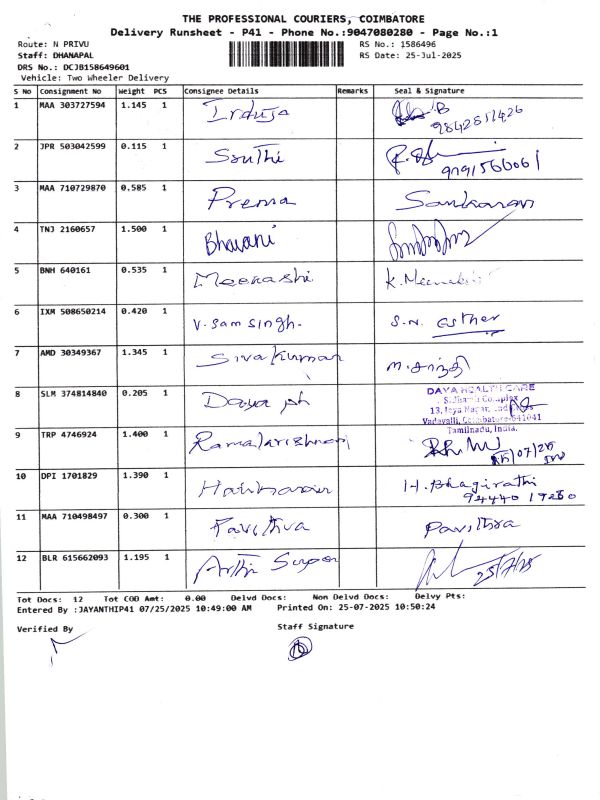 THE PROFESSIONAL COURIERS, COIMBATORE
Delivery Runsheet - P41 - Phone No.:9047080280 - Page No.:1
Route: N PRIVU RS No.: 1586496
Staff: DHANAPAL RS Date: 25-Jul-2025
DRS No.: DCJB158649601
Vehicle: Two Wheeler Delivery
S No Consignment No Weight PCS Consignee Details Remarks Seal & Signature
1 MAA 303727594 1.145 1 Induja B
2 JPR 503042599 0.115 1 Santhi
3 MAA 710729870 0.585 1 Prema Sankaran
4 TNJ 2160657 1.500 1 Bhavani
5 BNH 640161 0.535 1 Meenashi K.Meenakshi
6 IXM 508650214 0.420 1 V. Sam Singh. S.N. Esther
7 AMD 30349367 1.345 1 Sivakumar M. சாந்தி
8 SLM 374814840 0.205 1 Daya ph
DAYA HEALTH CARE
Sidharth Complex
13, Jeya Nagar,
Vadavalli, Coimbatore-641041
Tamilnadu, India.
9 TRP 4746924 1.400 1 Ramalakrishnan
10 DPI 1701829 1.390 1 Hariharan H. Bhagirathi
11 MAA 710498497 0.300 1 Pavithra Pavithra
12 BLR 615662093 1.195 1 Arthi 25/7/25
Tot Docs: 12 Tot COD Amt: 0.00 Delvd Docs: Non Delvd Docs: Delvy Pts:
Entered By :JAYANTHIP41 07/25/2025 10:49:00 AM Printed On: 25-07-2025 10:50:24
Verified By Staff Signature